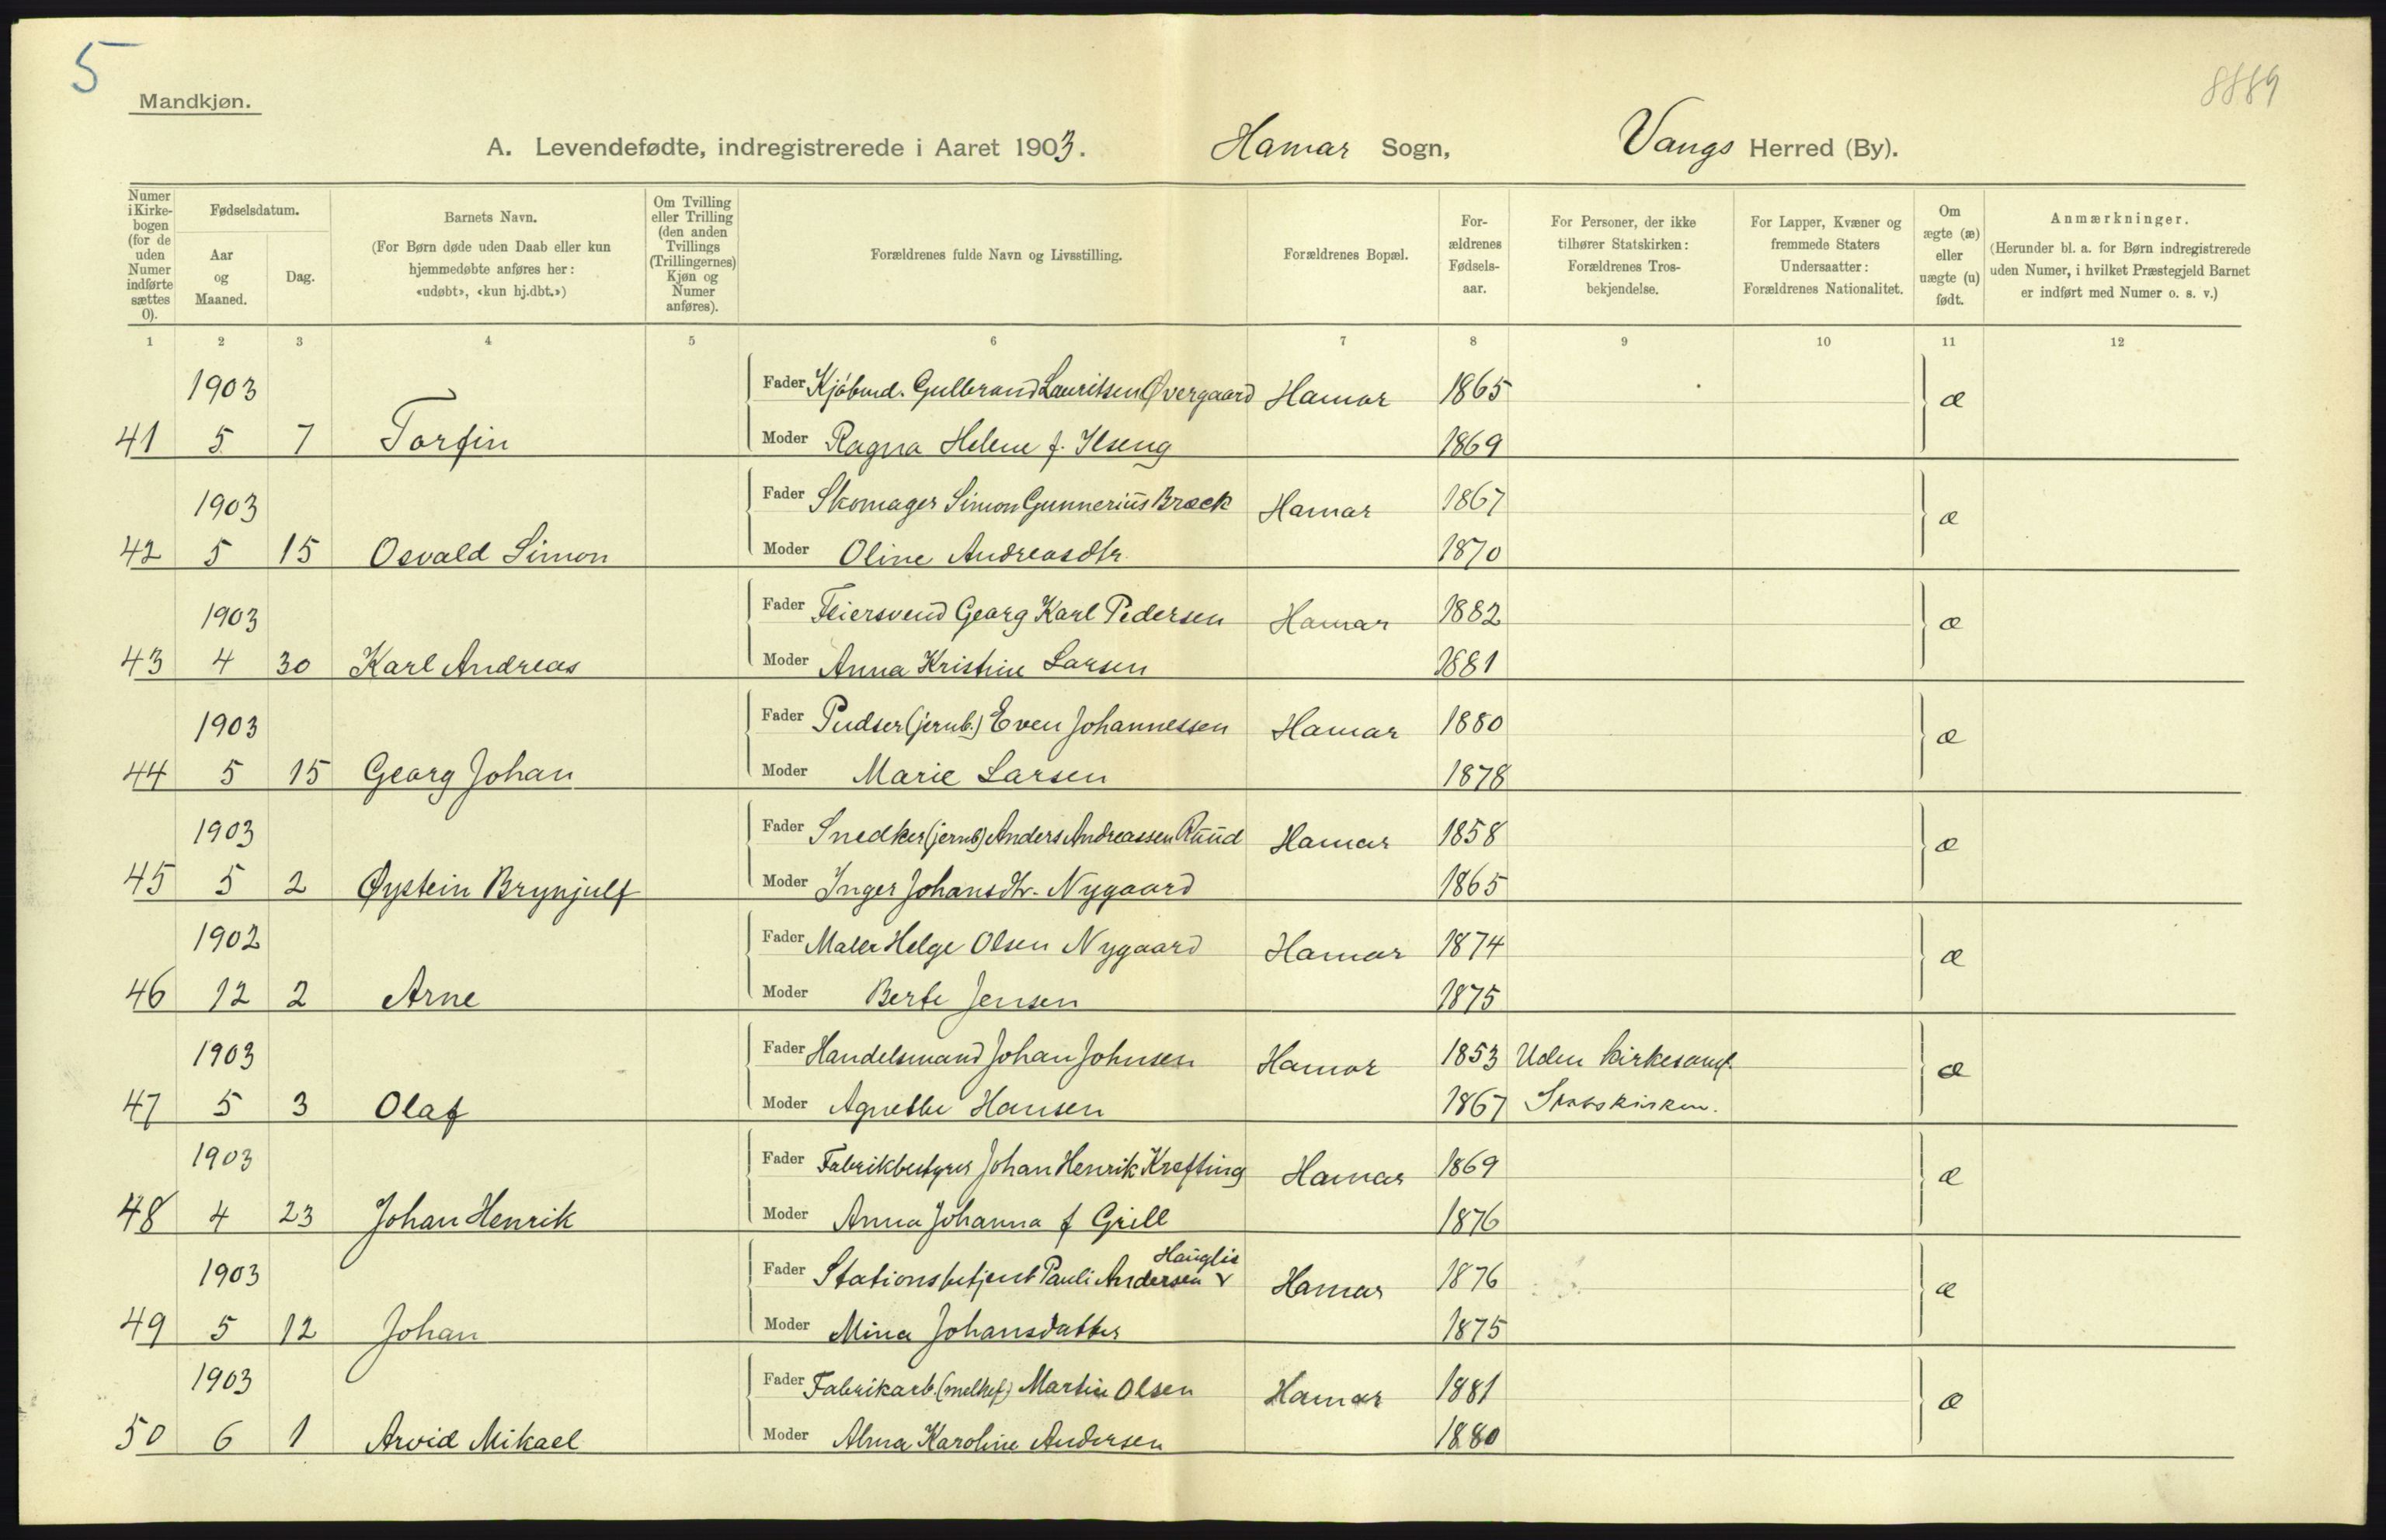 5
8889
Mandkjøn.
A. Levendefødte, indregistrerede i Aaret 1903. Hamar Sogn, Vangs Herred (By).
Numer i Kirke-bogen (for de uden Numer indførte sættes 0).
Fødselsdatum.
Aar og Maaned.
Dag.
Barnets Navn.
(For Børn døde uden Daab eller kun hjemmedøbte anføres her: «udøbt», «kun hj.dbt.»)
Om Tvilling eller Trilling (den anden Tvillings (Trillingernes) Kjøn og Numer anføres).
Forældrenes fulde Navn og Livsstilling.
Forældrenes Bopæl.
For-ældrenes Fødsels-aar.
For Personer, der ikke tilhører Statskirken: Forældrenes Tros-bekjendelse.
For Lapper, Kvæner og fremmede Staters Undersaatter: Forældrenes Nationalitet.
Om ægte (æ) eller uægte (u) født.
Anmærkninger.
(Herunder bl. a. for Børn indregistrerede uden Numer, i hvilket Præstegjeld Barnet er indført med Numer o. s. v.)
1 2 3 4 5 6 7 8 9 10 11 12
1903 Fader Kjøbmd. Gulbrand Lauritsen Øvergaard Hamar 1865 æ
41 5 7 Torfin Moder Ragna Helene f. Ilseng 1869
1903 Fader Skomager Simon Gunnerius Bræck Hamar 1867 æ
42 5 15 Osvald Simon Moder Oline Andreasdtr. 1870
1903 Fader Feiersvend Georg Karl Pedersen Hamar 1882 æ
43 4 30 Karl Andreas Moder Anna Kristine Larsen 1881
1903 Fader Pudser (jernb.) Even Johannessen Hamar 1880 æ
44 5 15 Georg Johan Moder Marie Larsen 1878
1903 Fader Snedker (jernb) Anders Andreassen Ruud Hamar 1858 æ
45 5 2 Øystein Brynjulf Moder Inger Johansdtr. Nygaard 1865
1902 Fader Maler Helge Olsen Nygaard Hamar 1874 æ
46 12 2 Arne Moder Berte Jensen 1875
1903 Fader Handelsmand Johan Johnsen Hamar 1853 Uden kirkesamf. æ
47 5 3 Olaf Moder Agnethe Hansen 1867 Statskirken.
1903 Fader Fabrikbestyrer Johan Henrik Krefting Hamar 1869 æ
48 4 23 Johan Henrik Moder Anna Johanna f Grill 1876
1903 Fader Stationsbetjent Pauli Andersen Hauglie Hamar 1876 æ
49 5 12 Johan Moder Mina Johansdatter 1875
1903 Fader Fabrikarb. (melkef) Martin Olsen Hamar 1881 æ
50 6 1 Arvid Mikael Moder Alma Karoline Andersen 1880